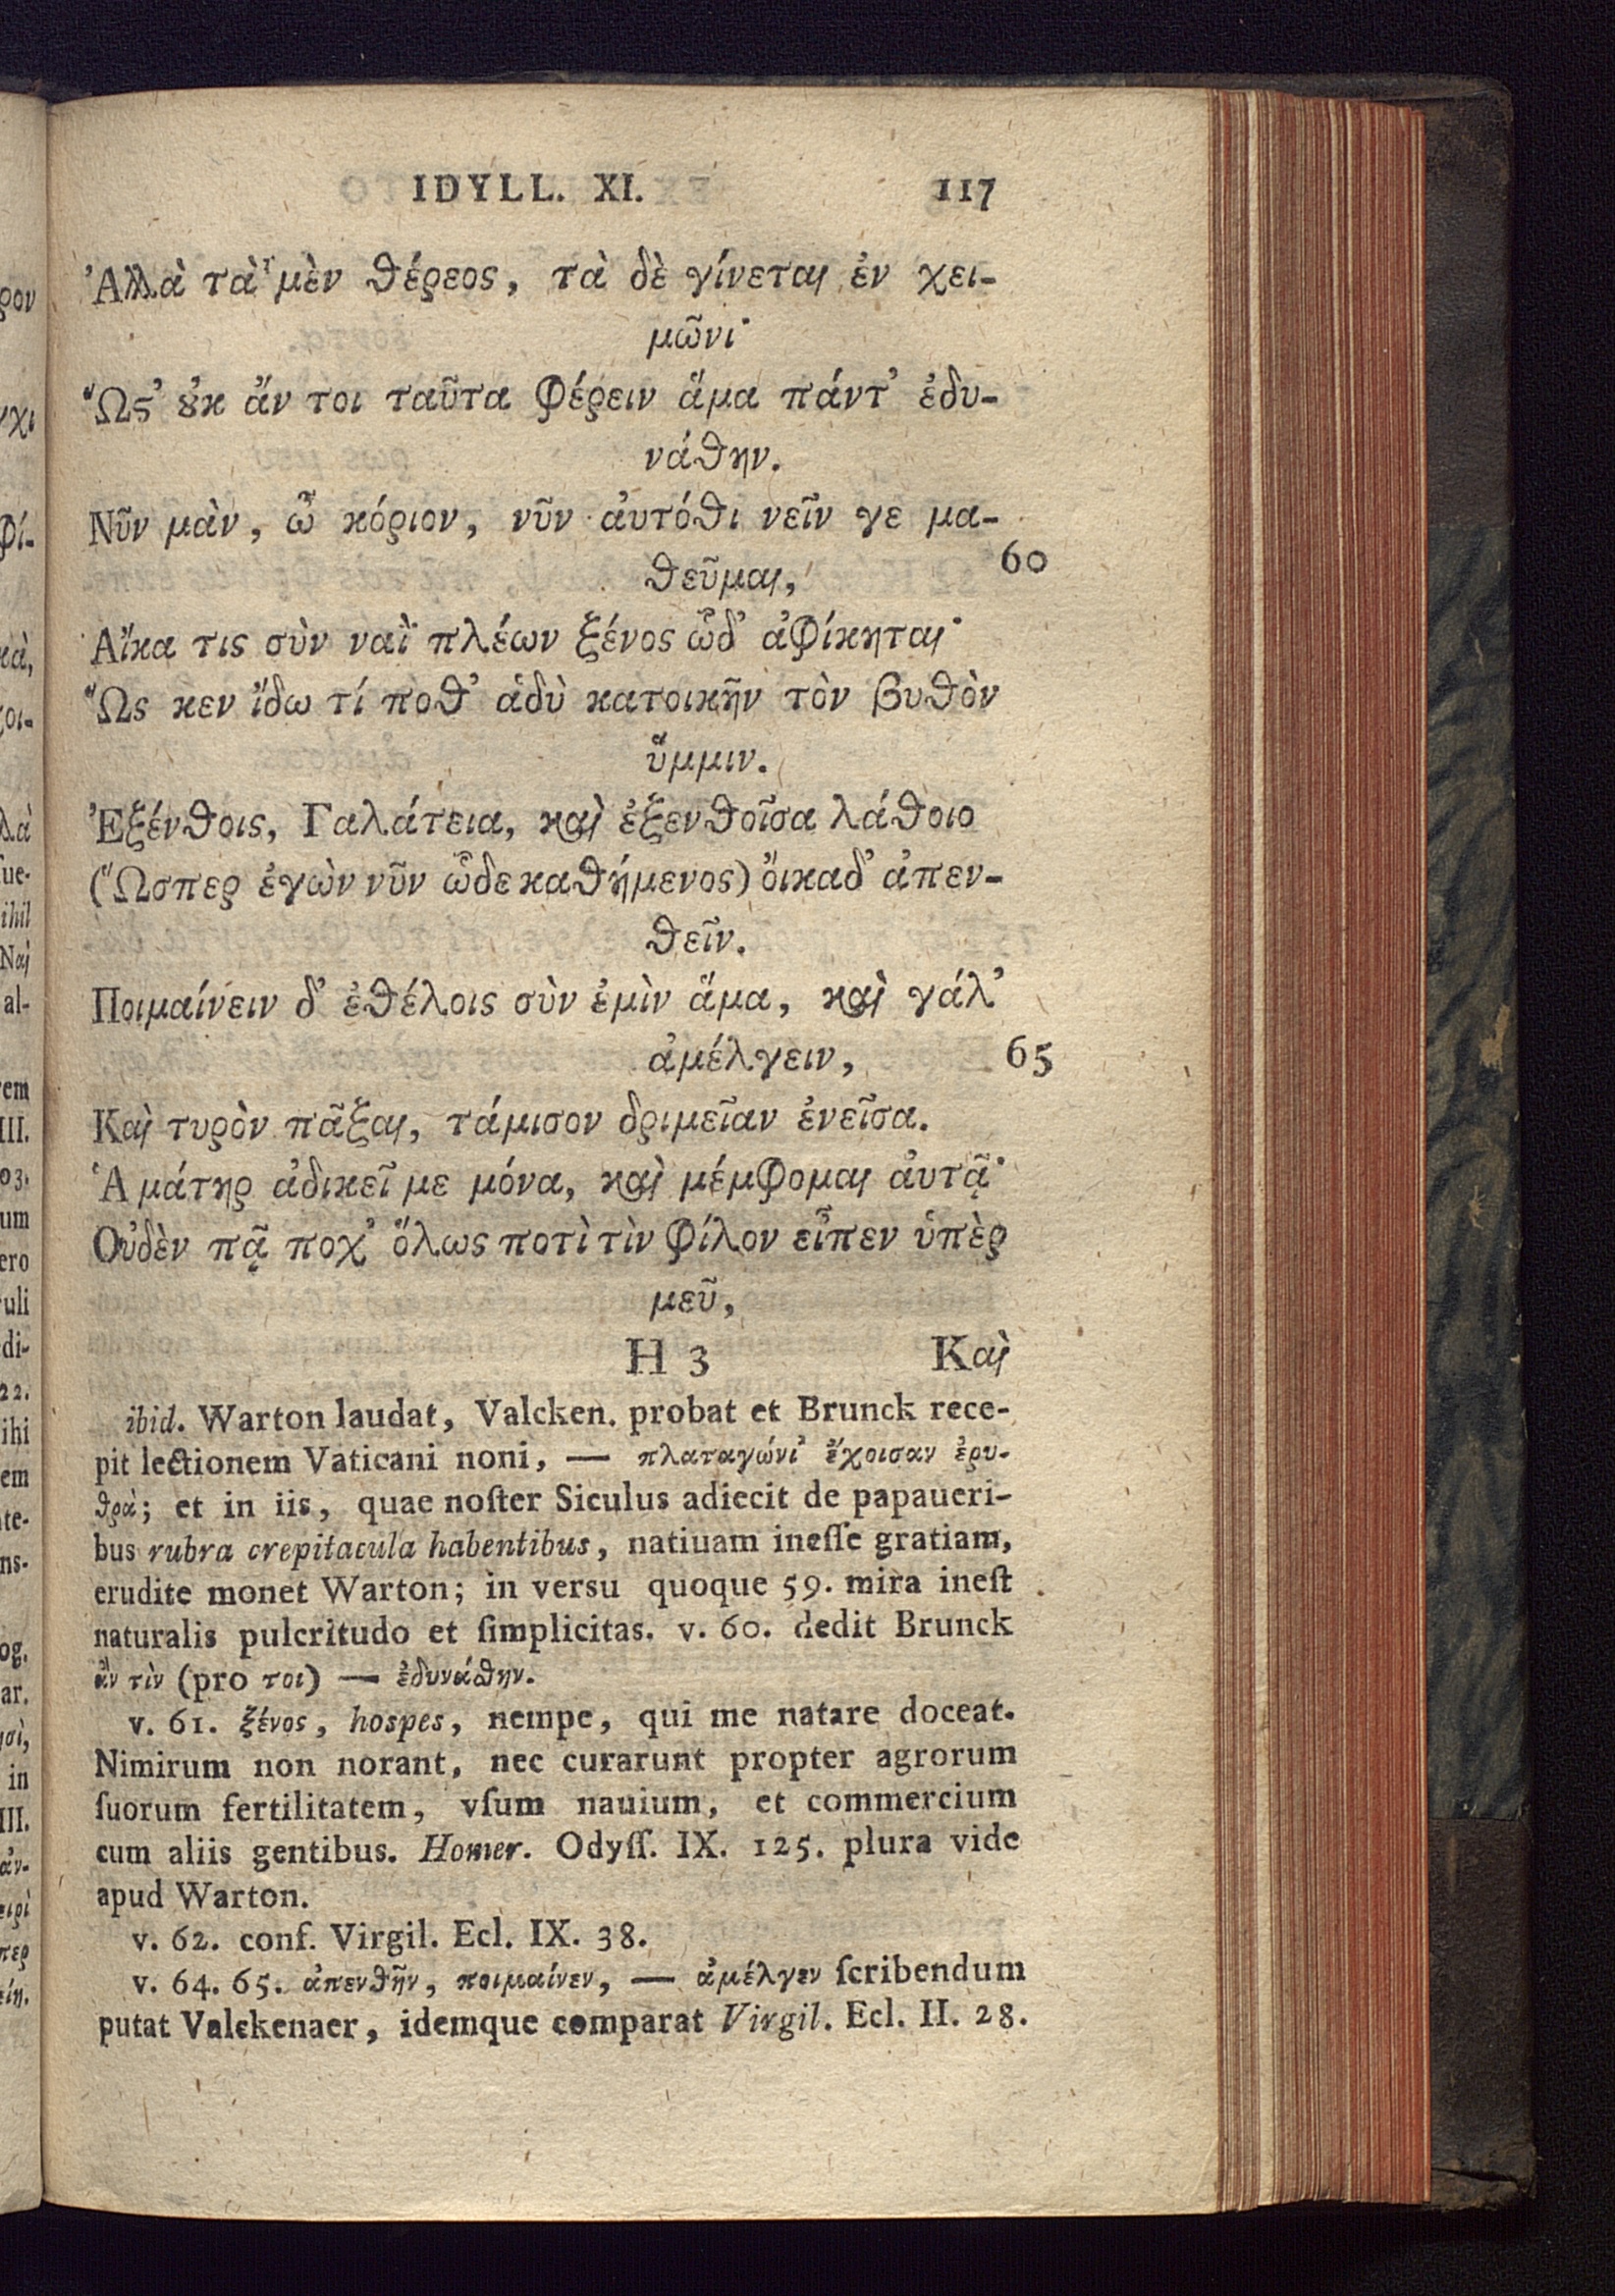 IDYLL. XI. 117
Ἀλλὰ τὰ μὲν θέρεος, τὰ δὲ γίνεται ἐν χει-
μῶνι·
Ὥςτ' ȣ̓κ ἄν τοι ταῦτα φέρειν ἅμα πάντ' ἐδυ-
νάθην.
Νῦν μὰν, ὦ κόριον, νῦν αὐτόθι νεῖν γε μα-
θεῦμαι, 60
Αἴκα τις σὺν ναῒ πλέων ξένος ὧδ' ἀφίκηται·
Ὥς κεν ἴδω τί ποθ' ἁδὺ κατοικῆν τὸν βυθὸν
ὔμμιν.
Ἐξένθοις, Γαλάτεια, καὶ ἐξενθοῖσα λάθοιο
(Ὥσπερ ἐγὼν νῦν ὧδε καθήμενος) οἴκαδ' ἀπεν-
θεῖν.
Ποιμαίνειν δ' ἐθέλοις σὺν ἐμὶν ἅμα, καὶ γάλ'
ἀμέλγειν, 65
Καὶ τυρὸν πᾶξαι, τάμισον δριμεῖαν ἐνεῖσα.
Ἁ μάτηρ ἀδικεῖ με μόνα, καὶ μέμφομαι αὐτᾷ·
Οὐδὲν πᾷ ποχ' ὅλως ποτὶ τὶν φίλον εἶπεν ὑπὲρ
μεῦ,
H 3 Καὶ
ibid. Warton laudat, Valcken. probat et Brunck rece-
pit lectionem Vaticani noni, — πλαταγώνι' ἔχοισαν ἐρυ-
θρὰ; et in iis, quae noſter Siculus adiecit de papaueri-
bus rubra crepitacula habentibus, natiuam ineſſe gratiam,
erudite monet Warton; in versu quoque 59. mira ineſt
naturalis pulcritudo et ſimplicitas. v. 60. dedit Brunck
ἂν τὶν (pro τοι) — ἐδυνάθην.
v. 61. ξένος, hospes, nempe, qui me natare doceat.
Nimirum non norant, nec curarunt propter agrorum
ſuorum fertilitatem, vſum nauium, et commercium
cum aliis gentibus. Homer. Odyſſ. IX. 125. plura vide
apud Warton.
v. 62. conf. Virgil. Ecl. IX. 38.
v. 64. 65. ἀπενθῆν, ποιμαίνεν, — ἀμέλγεν ſcribendum
putat Valckenaer, idemque comparat Virgil. Ecl. II. 28.